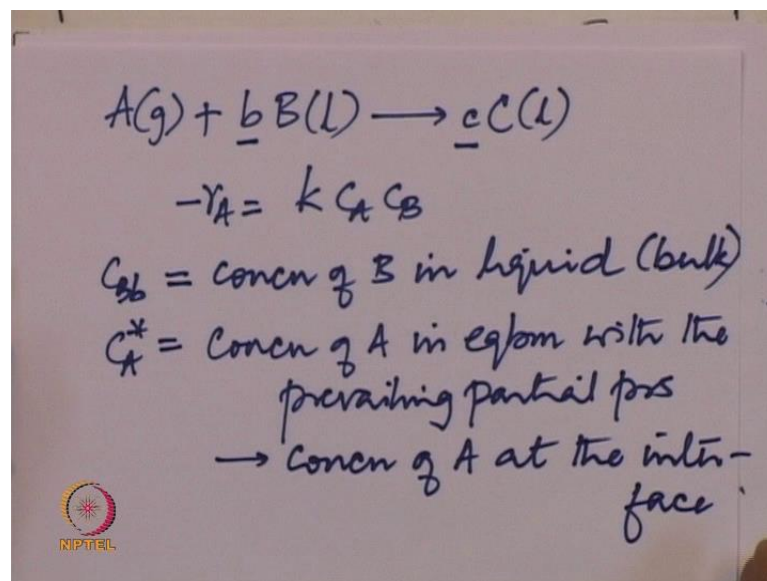 A(g) + b B(l) ⟶ c C(l)
-r_A = k C_A C_B
C_Bb = concn of B in liquid (bulk)
C_A^* = concn of A in eqbm with the
prevailing partial prs
→ concn of A at the inter-
face
NPTEL